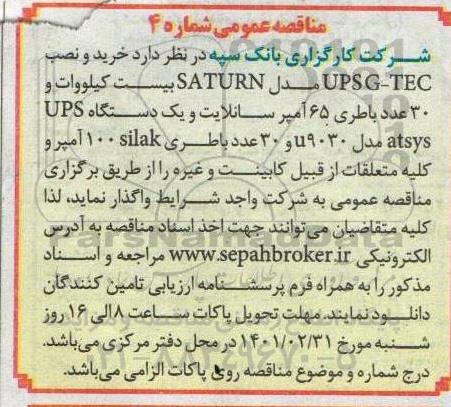 مناقصه عمومی شماره ۴
شرکت کارگزاری بانک سپه در نظر دارد خرید و نصب
UPSG-TEC مدل SATURN بیست کیلووات و
۳۰ عدد باطری ۶۵ آمپر سانلایت و یک دستگاه UPS
atsys مدل u۹۰۳۰ و ۳۰ عدد باطری silak ۱۰۰ آمپر و
کلیه متعلقات از قبیل کابینت و غیره را از طریق برگزاری
مناقصه عمومی به شرکت واجد شرایط واگذار نماید، لذا
کلیه متقاضیان می‌توانند جهت اخذ اسناد مناقصه به آدرس
الکترونیکی www.sepahbroker.ir مراجعه و اسناد
مذکور را به همراه فرم پرسشنامه ارزیابی تامین کنندگان
دانلود نمایند. مهلت تحویل پاکات ساعت ۸ الی ۱۶ روز
شنبه مورخ ۱۴۰۱/۰۲/۳۱ در محل دفتر مرکزی می‌باشد.
درج شماره و موضوع مناقصه روی پاکات الزامی می‌باشد.